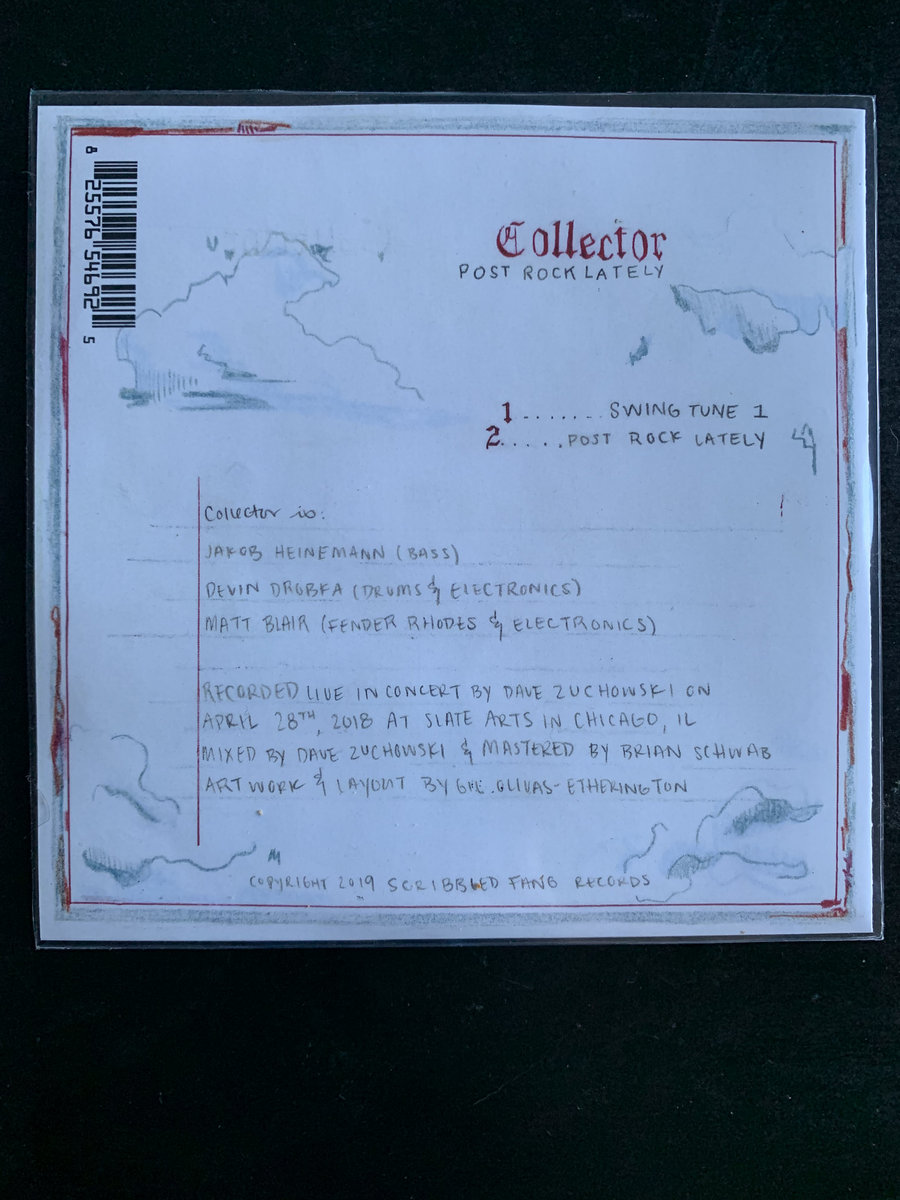 8 25576 54692 5
Collector
POST ROCK LATELY
1 ....... SWING TUNE 1
2 ..... POST ROCK LATELY
Collector is:
JAKOB HEINEMANN (BASS)
DEVIN DROBKA (DRUMS & ELECTRONICS)
MATT BLAIR (FENDER RHODES & ELECTRONICS)
RECORDED LIVE IN CONCERT BY DAVE ZUCHOWSKI ON
APRIL 28TH, 2018 AT SLATE ARTS IN CHICAGO, IL
MIXED BY DAVE ZUCHOWSKI & MASTERED BY BRIAN SCHWAB
ARTWORK & LAYOUT BY OLIVAS-ETHERINGTON
COPYRIGHT 2019 SCRIBBLED FANG RECORDS